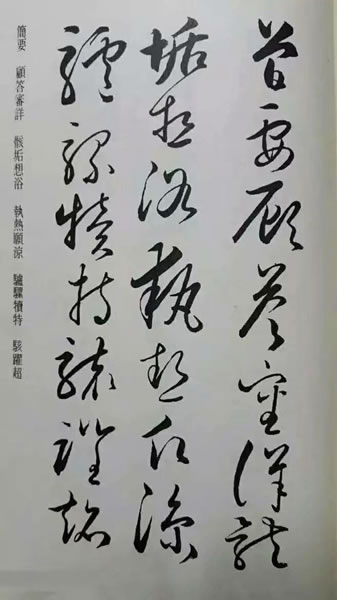 簡要顧答審詳骸
垢想浴執熱願涼
驢騾犢特駭躍超
簡要　顧答審詳　骸垢想浴　執熱願涼　驢騾犢特　駭躍超